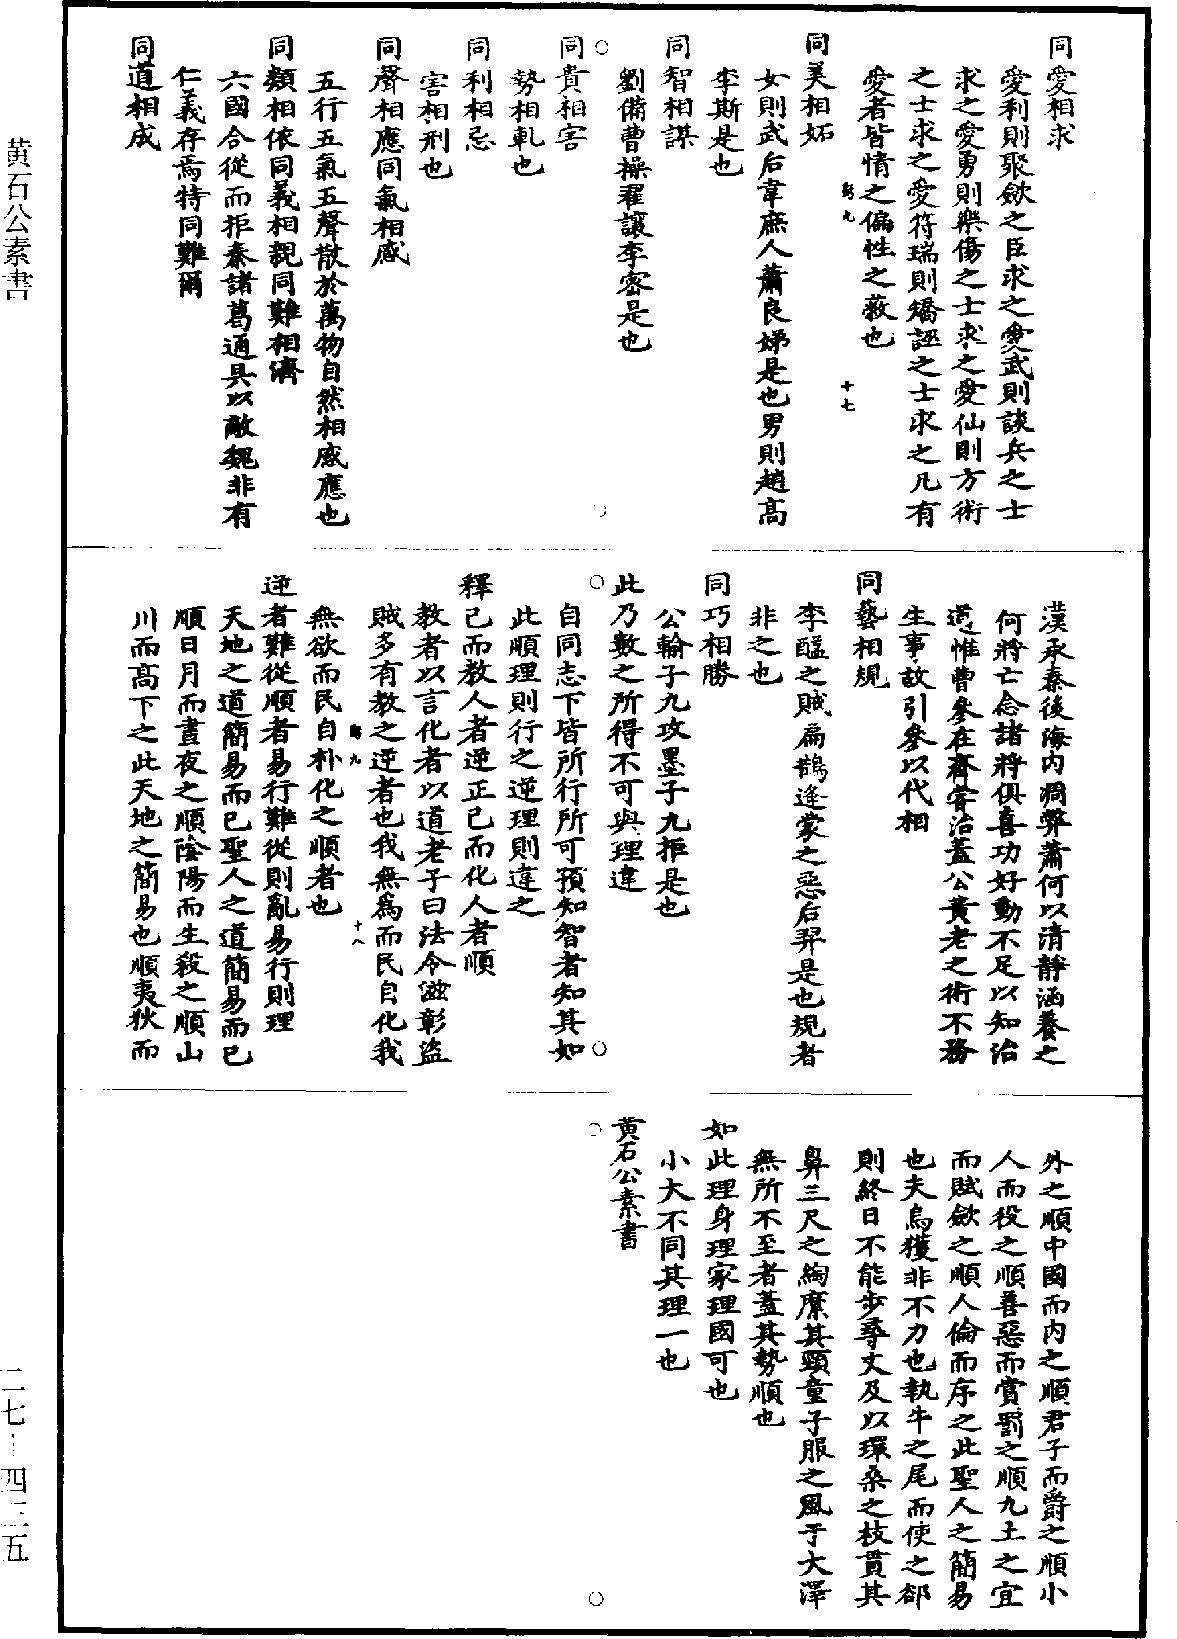 同愛相求
愛利則聚斂之臣求之愛武則談兵之士
求之愛勇則樂傷之士求之愛仙則方術
之士求之愛符瑞則矯誣之士求之凡有
愛者皆情之偏性之蔽也
同美相妬
女則武后韋庶人蕭良娣是也男則趙高
李斯是也
同智相謀
劉備曹操翟讓李密是也
同貴相害
勢相軋也
同利相忌
害相刑也
同聲相應同氣相感
五行五氣五聲散於萬物自然相感應也
同類相依同義相親同難相濟
六國合從而拒秦諸葛通吳以敵魏非有
仁義存焉特同難爾
同道相成
漢承秦後海内凋弊蕭何以清靜涵養之
何將亡念諸將俱喜功好動不足以知治
道惟曹參在齊嘗治蓋公黃老之術不務
生事故引參以代相
同藝相規
李醯之賊扁鵲逢蒙之惡后羿是也規者
非之也
同巧相勝
公輸子九攻墨子九拒是也
此乃數之所得不可與理違
自同志下皆所行所可預知智者知其如
此順理則行之逆理則違之
釋己而教人者逆正己而化人者順
教者以言化者以道老子曰法令滋彰盜
賊多有教之逆者也我無爲而民自化我
無欲而民自朴化之順者也
逆者難從順者易行難從則亂易行則理
天地之道簡易而已聖人之道簡易而已
順日月而晝夜之順陰陽而生殺之順山
川而高下之此天地之簡易也順夷狄而
外之順中國而内之順君子而爵之順小
人而役之順善惡而賞罰之順九土之宜
而賦斂之順人倫而序之此聖人之簡易
也夫烏獲非不力也執牛之尾而使之郤
則終日不能步尋丈及以環桑之枝貫其
鼻三尺之綯縻其頸童子服之風于大澤
無所不至者蓋其勢順也
如此理身理家理國可也
小大不同其理一也
黃石公素書
黃石公素書
二七—四三五
九
十七
九
十八